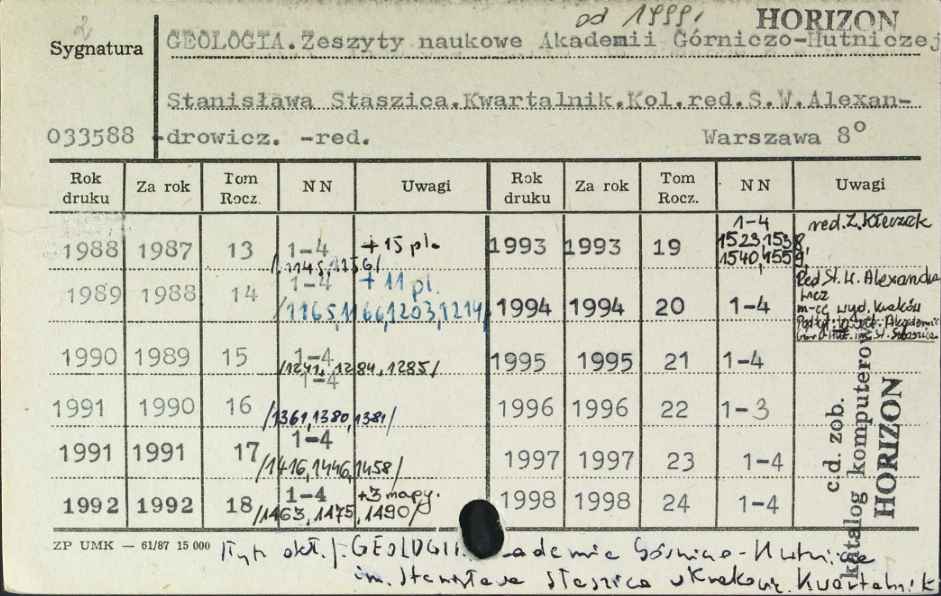 2
od 1999.
HORIZON
Sygnatura
GEOLOGIA. Zeszyty naukowe Akademii Górniczo-Hutniczej
Stanisława Staszica.Kwartalnik.Kol.red.S.W.Alexan-
033588 drowicz. -red. Warszawa 8°
Rok druku Za rok Tom Rocz. NN Uwagi Rok druku Za rok Tom Rocz. NN Uwagi
1988 1987 13 1-4 +15 pl.
/1145,1156/
1989 1988 14 1-4 +11 pl.
/1165,1166,1203,1214/
1990 1989 15 1-4
/1241, 1284, 1285/
1991 1990 16 1-4
/1361,1380,1381/
1991 1991 17 1-4
/1416,1446,1458/
1992 1992 18 1-4 +3 mapy.
/1463, 1475, 1490/
1993 1993 19 1-4
1523,1538,
1540,1559,
red. Z. Kłeczek
1994 1994 20 1-4
Red St. W. Alexandro
wicz
m-ce wyd. Kraków
1995 1995 21 1-4
1996 1996 22 1-3
1997 1997 23 1-4
1998 1998 24 1-4
c.d. zob.
katalog komputerow
HORIZON
ZP UMK — 61/87 15 000
Tyt. okł.: GEOLOGIA. Akademia Górniczo-Hutnicza
im. Stanisława Staszica w Krakowie. Kwartalnik